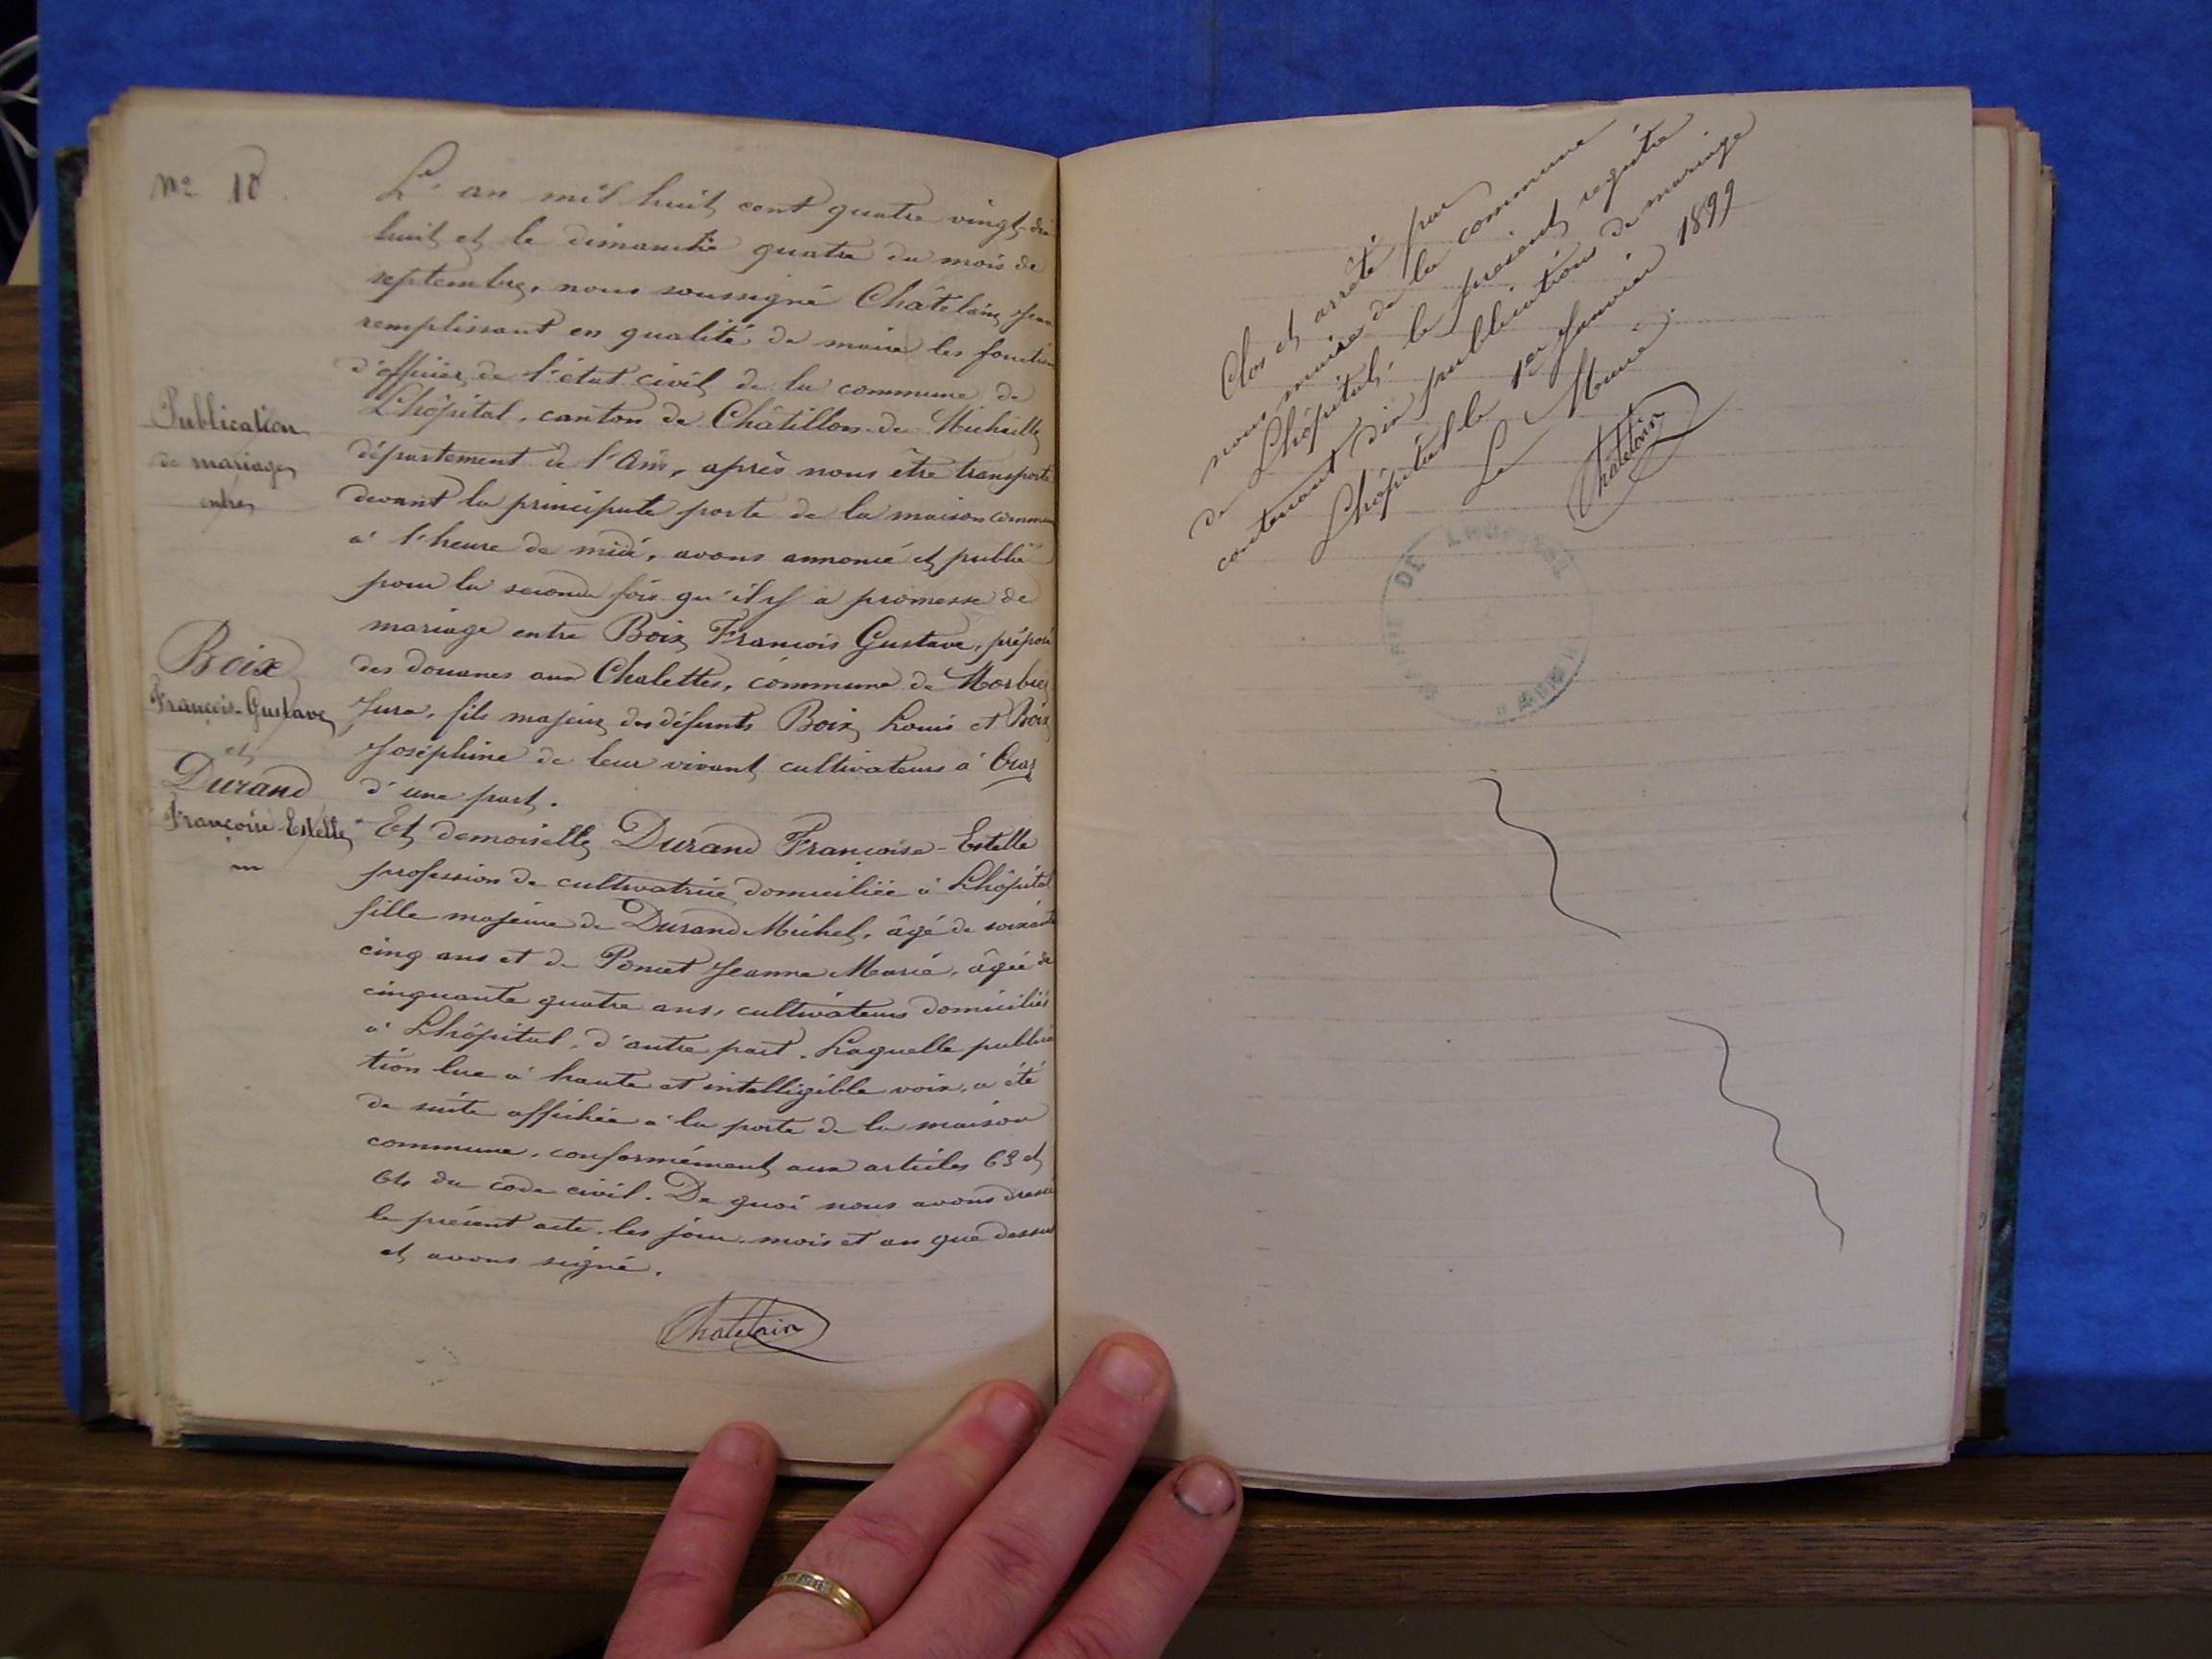 N° 10.
L'an mil huit cent quatre vingt-dix
huit et le dimanche quatre du mois de
septembre, nous soussigné Châtelain, Jean
remplissant en qualité de maire les fonction
d'officier de l'état civil de la commune de
Lhôpital, canton de Châtillon-de-Michaille
département de l'Ain, après nous être transporté
devant la principale porte de la maison commune
à l'heure de midi, avons annoncé et publié
pour la seconde fois qu'il y a promesse de
mariage entre Boix François Gustave, préposé
des douanes aux Chalettes, commune de Morbier
Jura, fils majeur des défunts Boix Louis et Boix
Joséphine de leur vivant cultivateurs à Craz
d'une part.
Et demoiselle Durand Françoise-Estelle
profession de cultivatrice domiciliée à Lhôpital
fille majeure de Durand Michel, âgé de soixante
cinq ans et de Poncet Jeanne Marie, âgée de
cinquante quatre ans, cultivateurs domiciliés
à Lhôpital, d'autre part. Laquelle publica
tion lue à haute et intelligible voix, a été
de suite affichée à la porte de la maison
commune, conformément aux articles 63 et
64 du code civil. De quoi nous avons dressé
le présent acte, les jour, mois et an que dessus
et avons signé.
Chatelain
Publication
de mariage
entre
Boix
François-Gustave
et
Durand
Françoise-Estelle
Clos et arrêté par
nous maire de la commune
de Lhôpital, le présent registre
contenant dix publications de mariage
Lhôpital le 1er Janvier 1899
Le Maire.
Chatelain
MAIRIE DE LHOPITAL